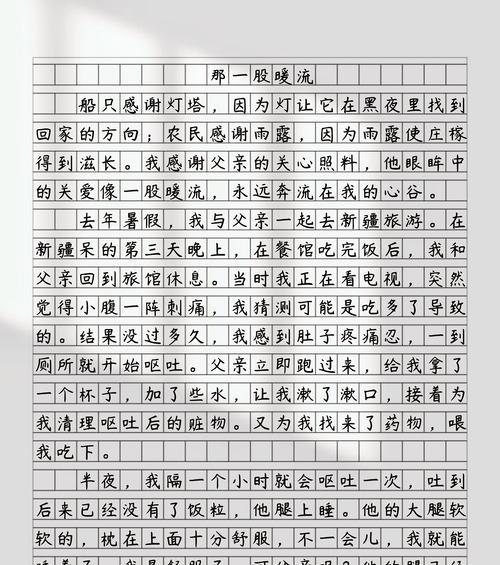 那一股暖流
船只感谢灯塔，因为灯让它在黑夜里找到
回家的方向；农民感谢雨露，因为雨露使庄稼
得到滋长。我感谢父亲的关心照料，他眼眸中
的关爱像一股暖流，永远奔流在我的心谷。
去年暑假，我与父亲一起去新疆旅游。在
新疆呆的第三天晚上，在餐馆吃完饭后，我和
父亲回到旅馆休息。当时我正在看电视，突然
觉得小腹一阵刺痛，我猜测可能是吃多了导致
的。结果没过多久，我感到肚子疼痛忍，一到
厕所就开始呕吐。父亲立即跑过来，给我拿了
一个杯子，加了些水，让我漱了漱口，接着为
我清理呕吐后的赃物。又为我找来了药物，喂
我吃下。
半夜，我隔一个小时就会呕吐一次，吐到
后来已经没有了饭粒，他腿上睡。他的大腿软
软的，枕在上面十分舒服，不一会儿，我就能